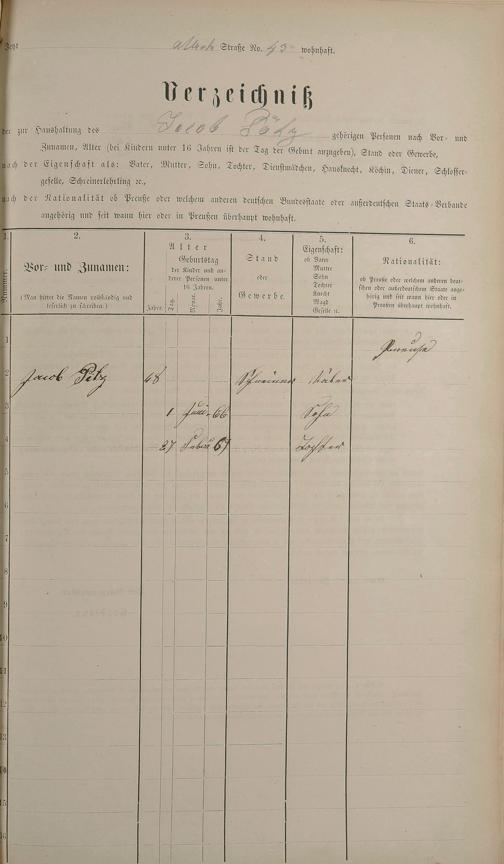 Jetzt Straße No. 43 wohnhaft.
Verzeichniß
der zur Haushaltung des Jacob gehörigen Personen nach Vor- und
Zunamen, Alter (bei Kindern unter 16 Jahren ist der Tag der Geburt anzugeben), Stand oder Gewerbe,
nach der Eigenschaft als: Vater, Mutter, Sohn, Tochter, Dienstmädchen, Hausknecht, Köchin, Diener, Schlosser-
geselle, Schreinerlehrling ꝛc.,
nach der Nationalität ob Preuße oder welchem anderen deutschen Bundesstaate oder außerdeutschen Staats-Verbande
angehörig und seit wann hier oder in Preußen überhaupt wohnhaft.
1.
Nummer.
2.
Vor- und Zunamen:
(Man bittet die Namen vollständig und
leserlich zu schreiben.)
3.
Alter
Geburtstag
der Kinder und an-
derer Personen unter
16 Jahren.
Jahre.
Tag.
Monat.
Jahr.
4.
Stand
oder
Gewerbe.
5.
Eigenschaft:
ob Vater
Mutter
Sohn
Tochter
Knecht
Magd
Geselle ꝛc.
6.
Nationalität:
ob Preuße oder welchem anderen deut-
schen oder außerdeutschem Staate ange-
hörig und seit wann hier oder in
Preußen überhaupt wohnhaft.
1 Preuße
2 Jacob 48 Schreiner Vater
3 1 Juni 66 Sohn
4 27 Febru 69 Tochter
5
6
7
8
9
10
11
12
13
14
15
16